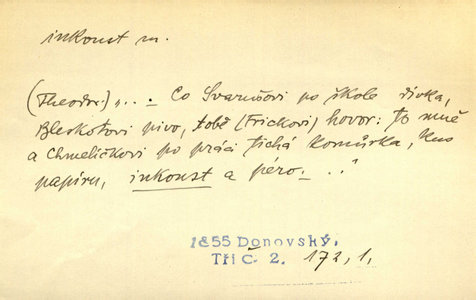 inkoust m.
(Theodor:) „... – Co Svarušovi po škole dívka,
Bleskotovi pivo, tobě (Frickovi) hovor: to mně
a Chmelíčkovi po práci tichá komůrka, kus
papíru, inkoust a péro. – ..."
1855 Donovský,
Tři č. 2. 172, 1.